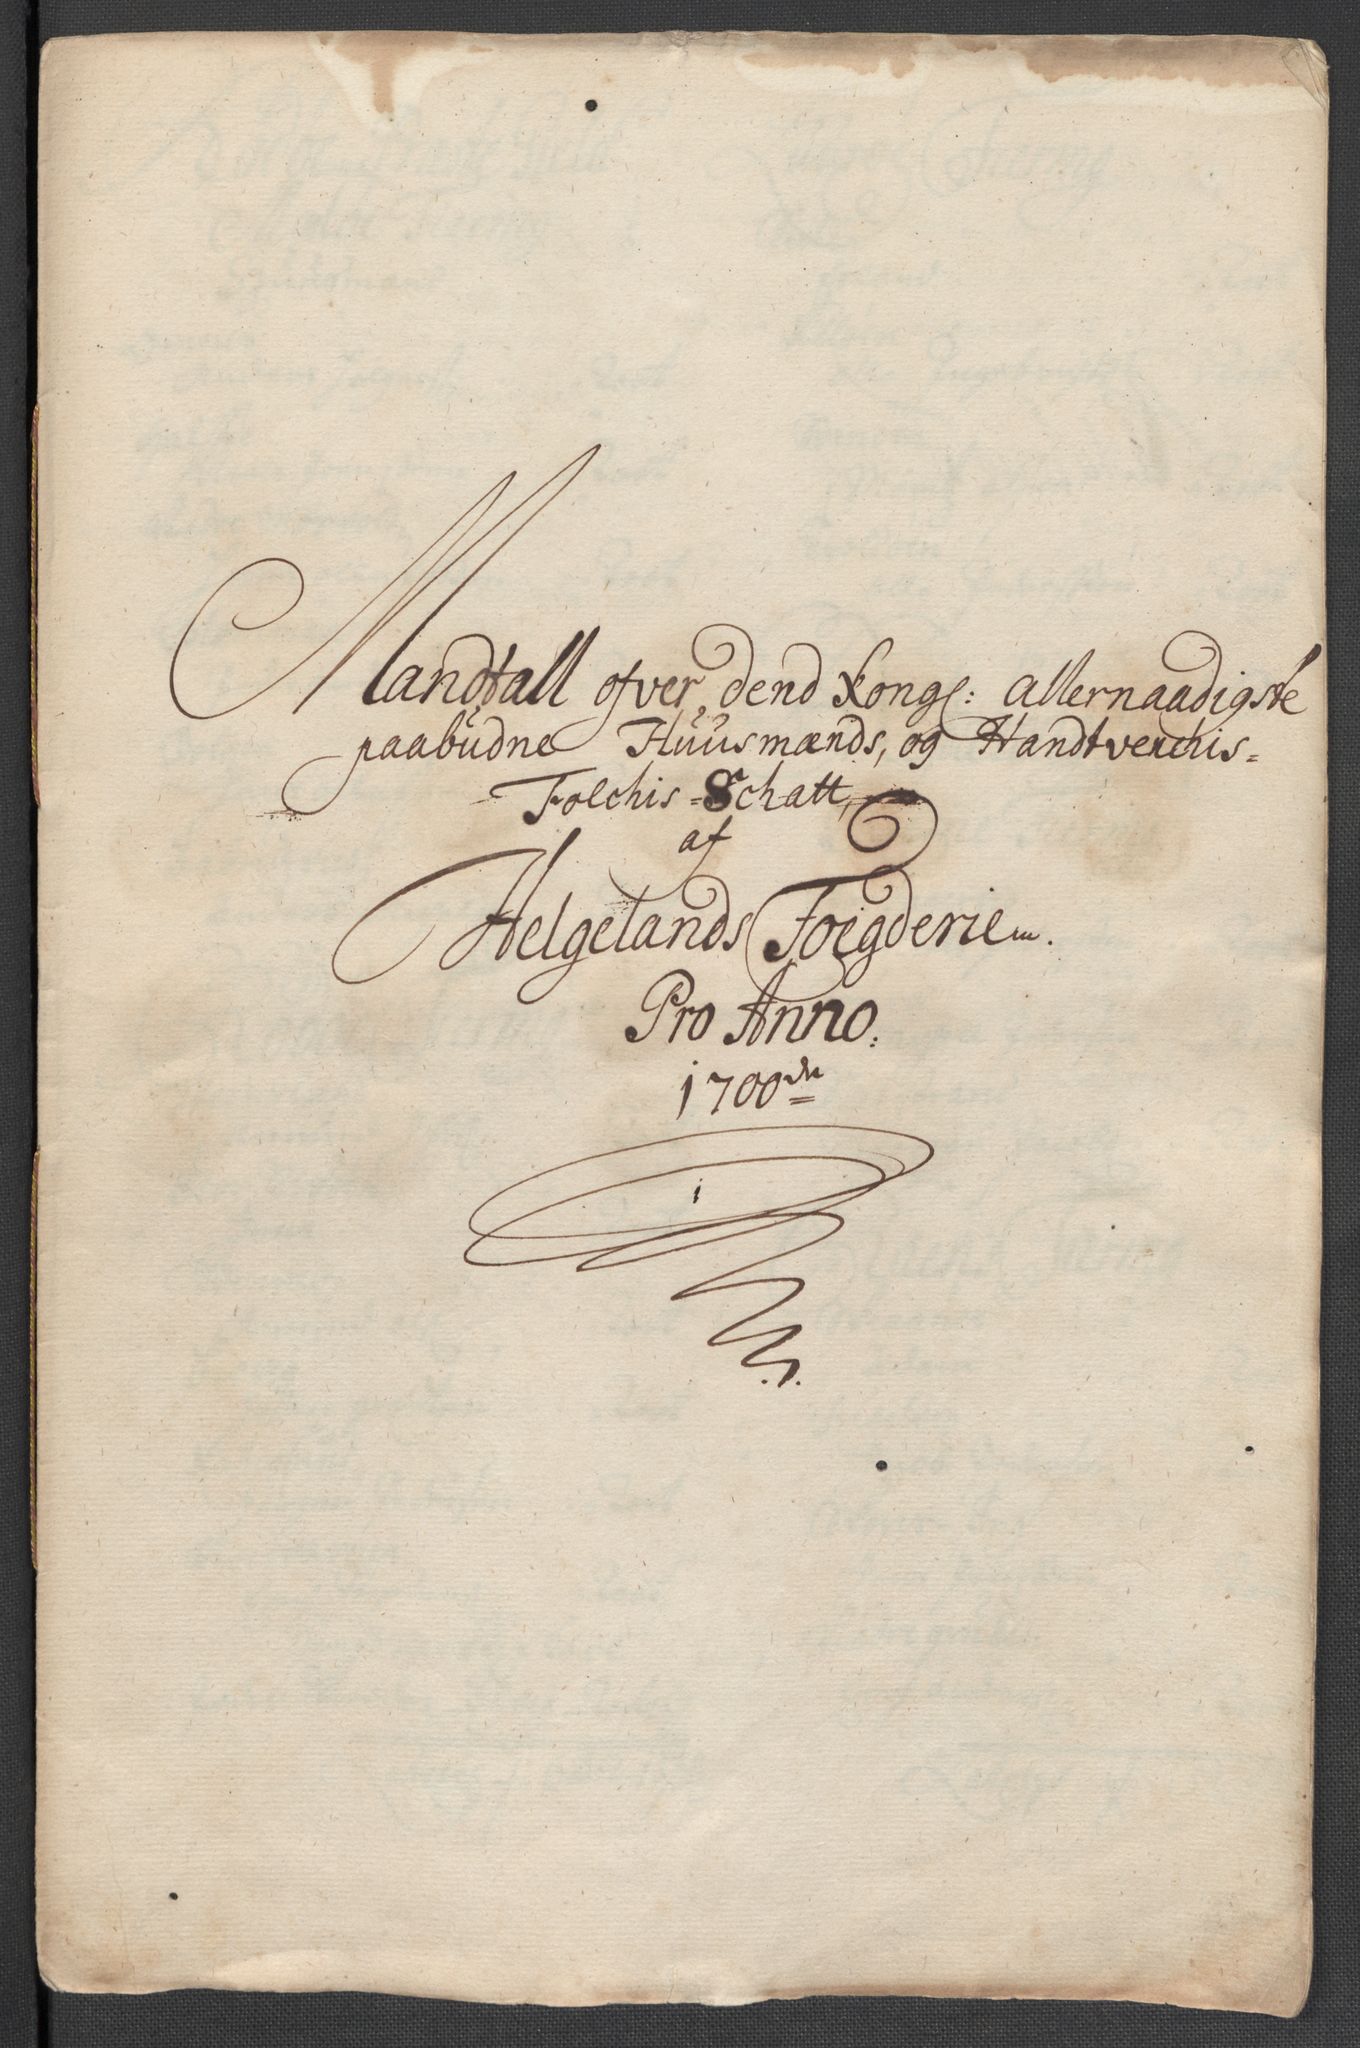 Mandtall ofver dend Kongl: allernaadigste
paabudne Huusmænds, og Handtverchis=
Folchis-Schatt,
af
Helgelands Foegderie.
Pro Anno.
1700de